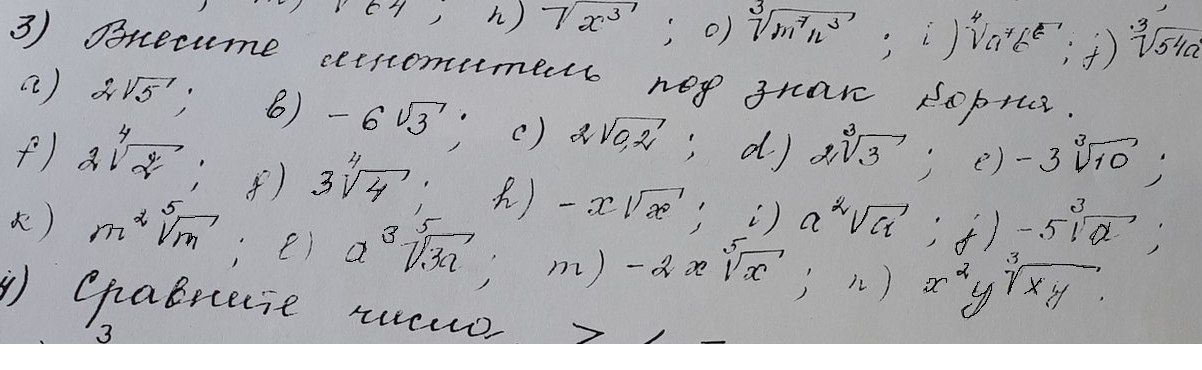 √64 ; n) √x³ ; o) ³√m⁷n³ ; i) ⁴√a⁷b⁶ ; j) ³√54a
3) Внесите множитель под знак корня.
a) 2√5 ; b) -6√3 ; c) 2√0,2 ; d) 2³√3 ; e) -3³√10 ;
f) 2⁴√2 ; g) 3⁴√4 ; h) -x√x ; i) a²√a ; j) -5³√a ;
k) m²⁵√m ; l) a³⁵√3a ; m) -2x⁵√x ; n) x²y³√xy .
4) Сравните числа
3